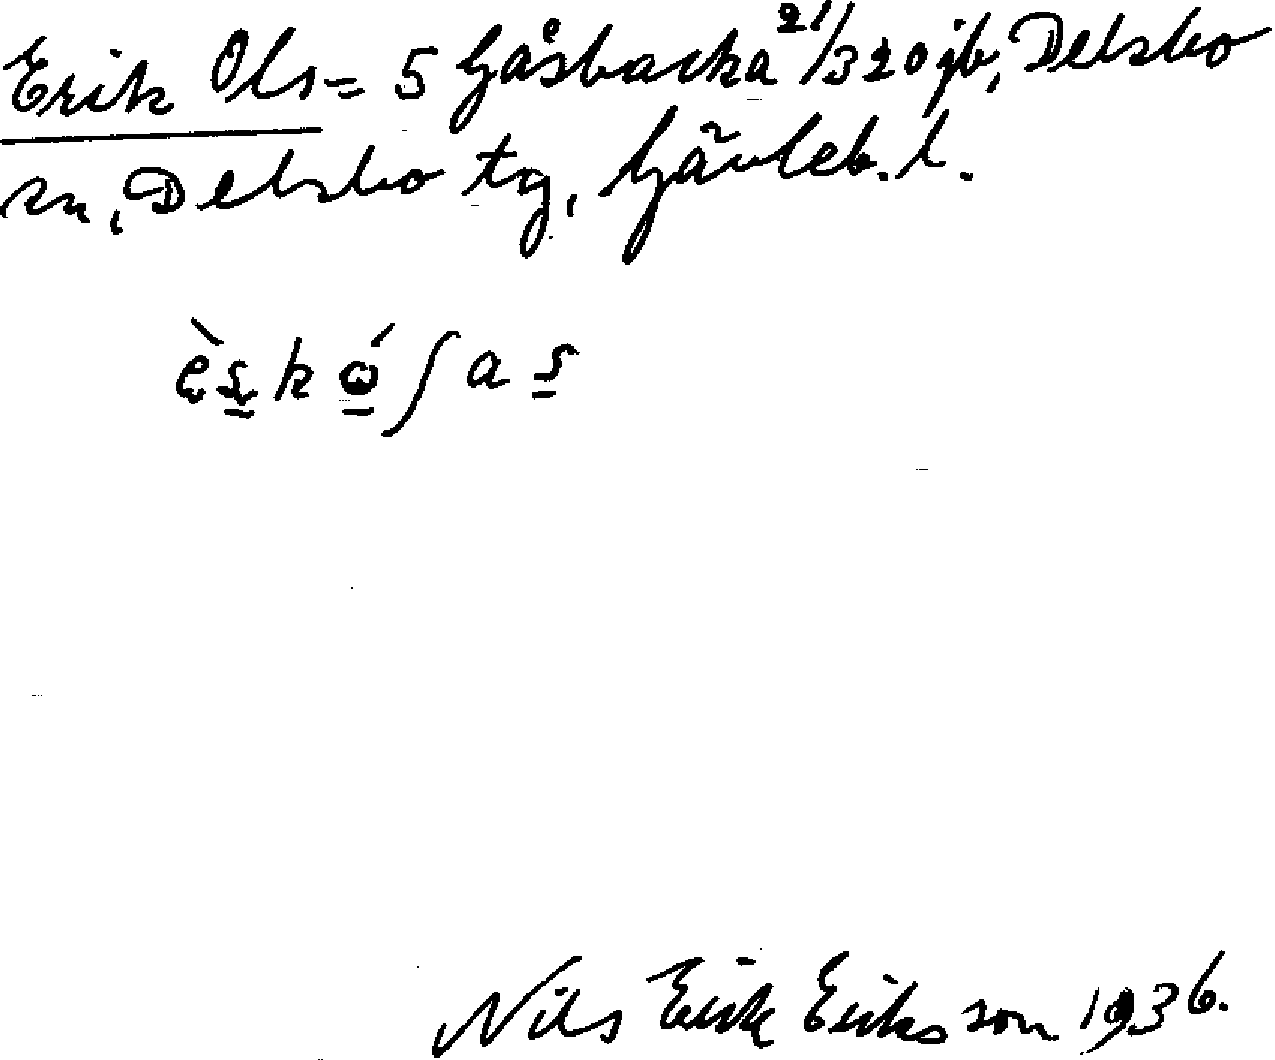 Erik Ols= 5 Gåsbacka 21/320 jb, Delsbo
sn, Delsbo tg, Gävleb. l.
Nils Erik Eriksson 1936.